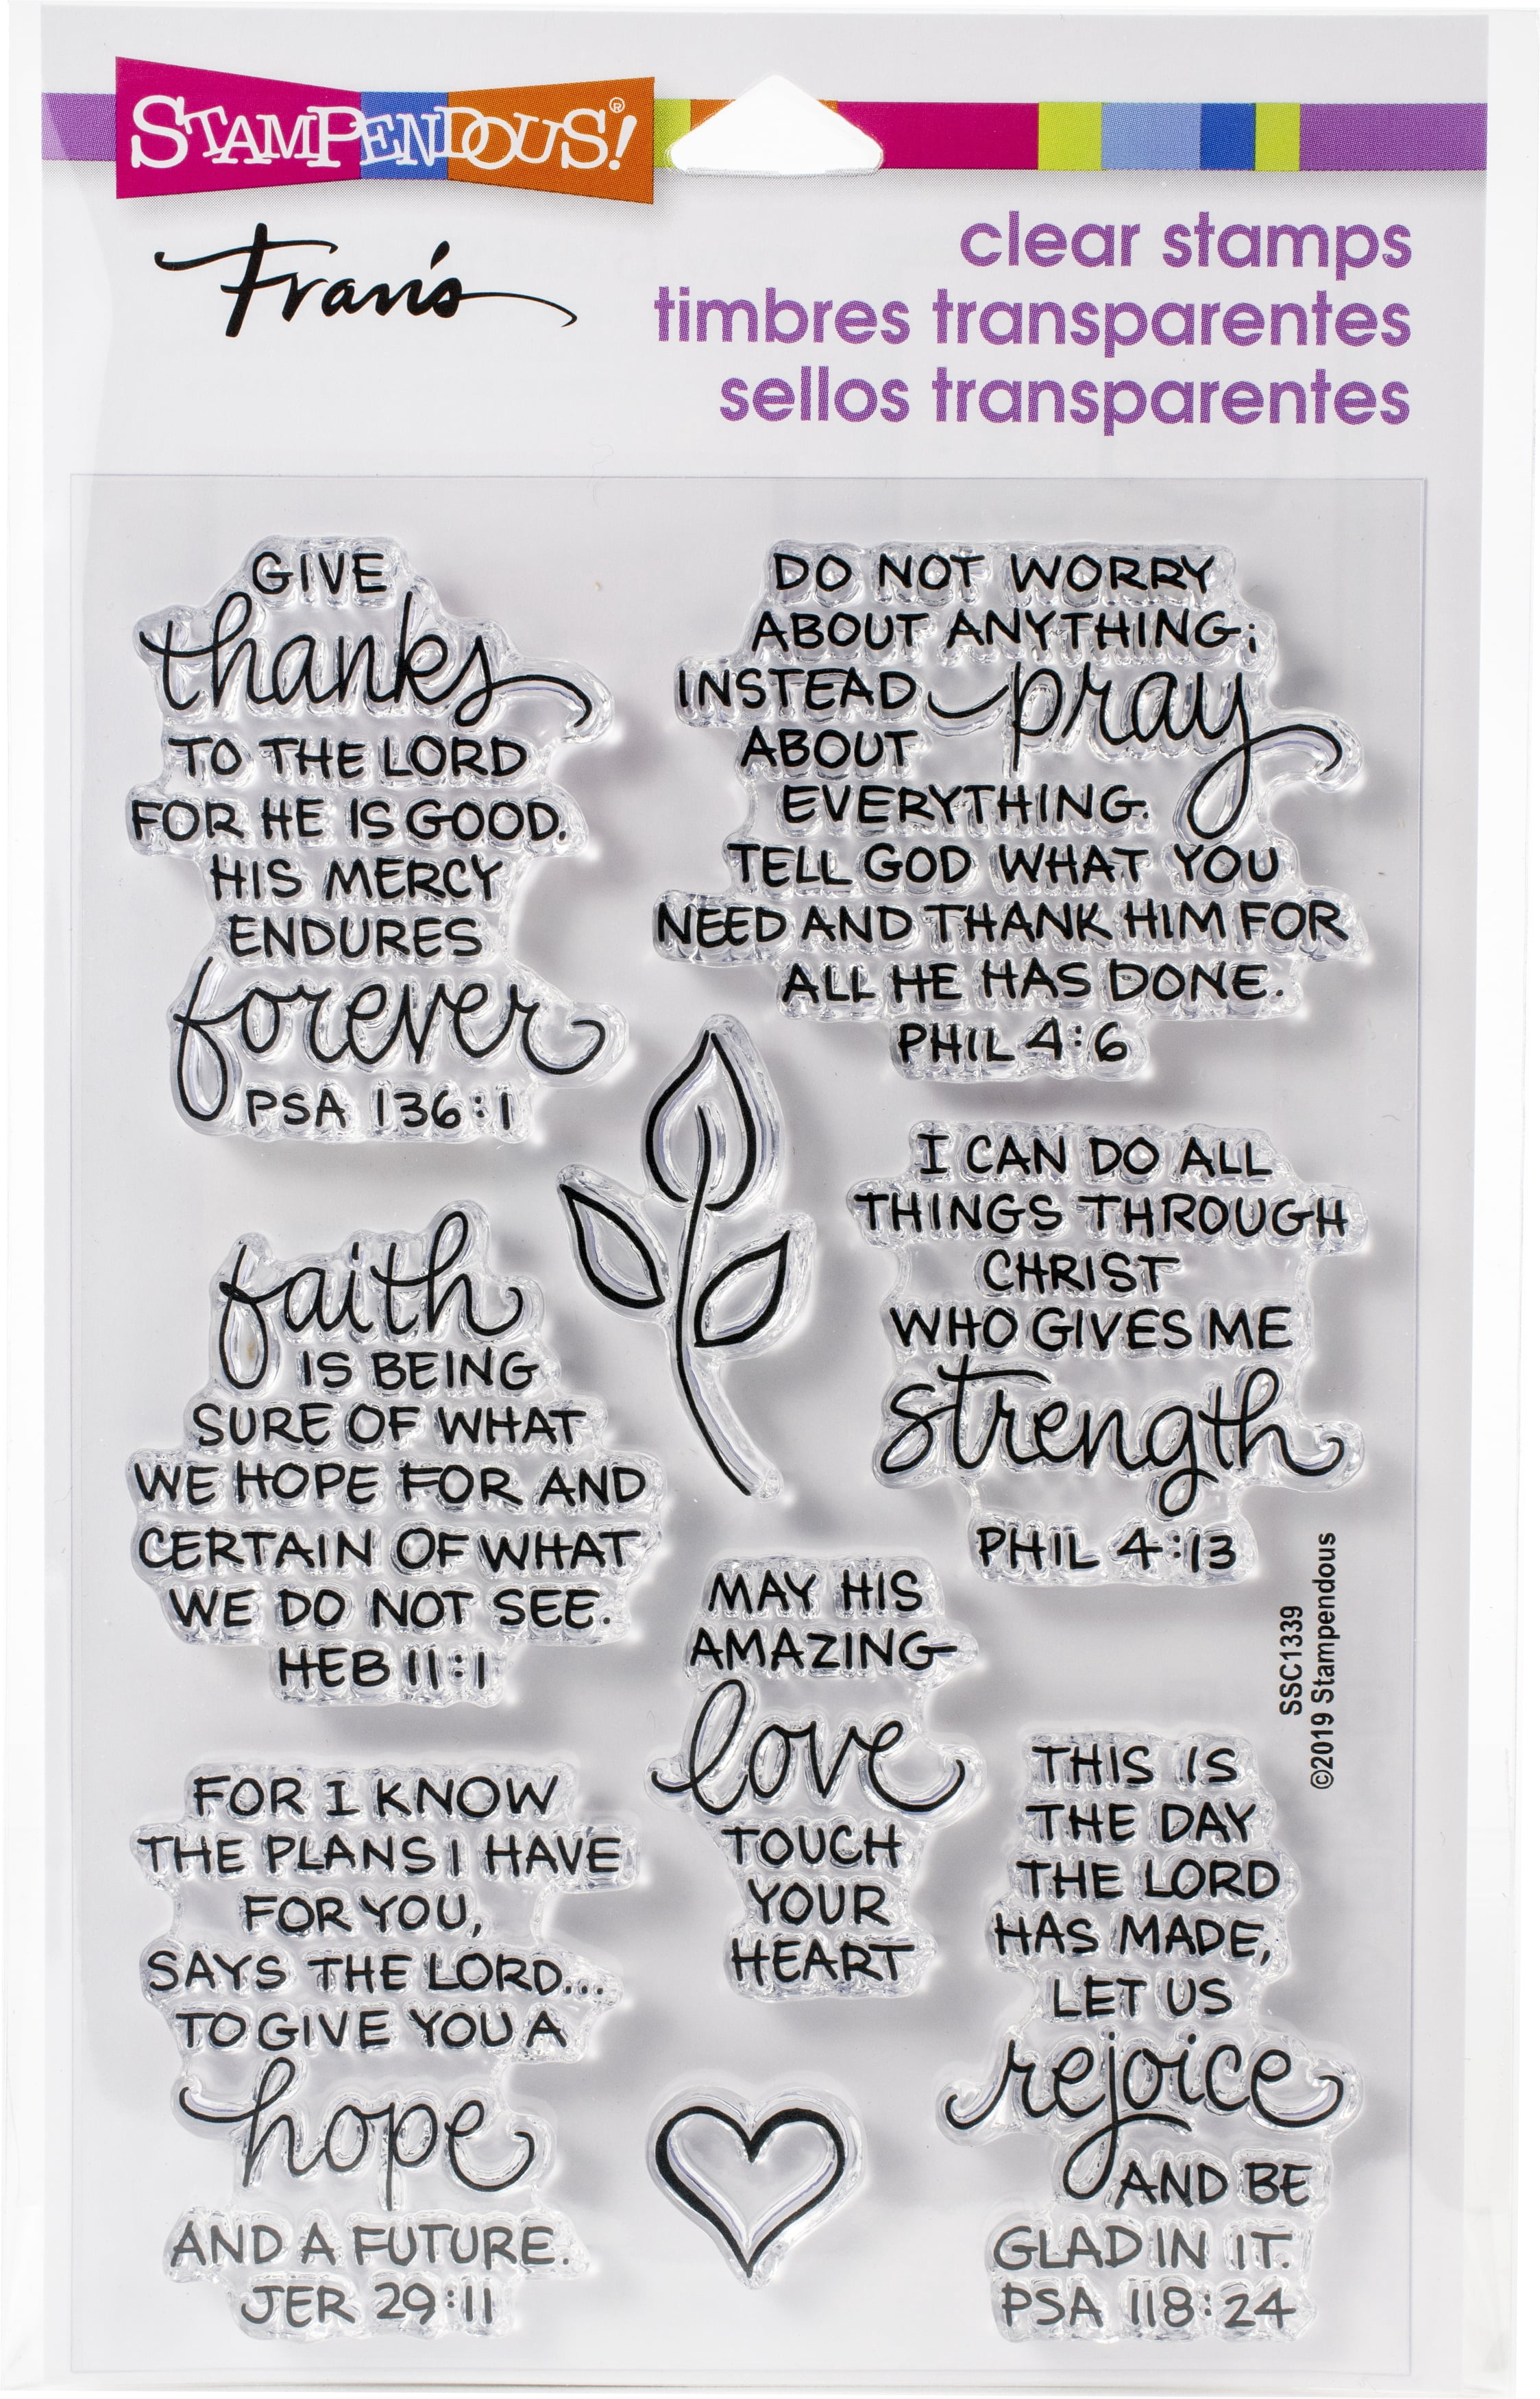 STAMPENDOUS!®
Fran's
clear stamps
timbres transparentes
sellos transparentes
GIVE
thanks
TO THE LORD
FOR HE IS GOOD.
HIS MERCY
ENDURES
forever
PSA 136:1
DO NOT WORRY
ABOUT ANYTHING;
INSTEAD pray
ABOUT
EVERYTHING.
TELL GOD WHAT YOU
NEED AND THANK HIM FOR
ALL HE HAS DONE.
PHIL 4:6
I CAN DO ALL
THINGS THROUGH
CHRIST
WHO GIVES ME
strength
PHIL 4:13
faith
IS BEING
SURE OF WHAT
WE HOPE FOR AND
CERTAIN OF WHAT
WE DO NOT SEE.
HEB 11:1
MAY HIS
AMAZING
love
TOUCH
YOUR
HEART
SSC1339
©2019 Stampendous
FOR I KNOW
THE PLANS I HAVE
FOR YOU,
SAYS THE LORD...
TO GIVE YOU A
hope
AND A FUTURE.
JER 29:11
THIS IS
THE DAY
THE LORD
HAS MADE,
LET US
rejoice
AND BE
GLAD IN IT.
PSA 118:24